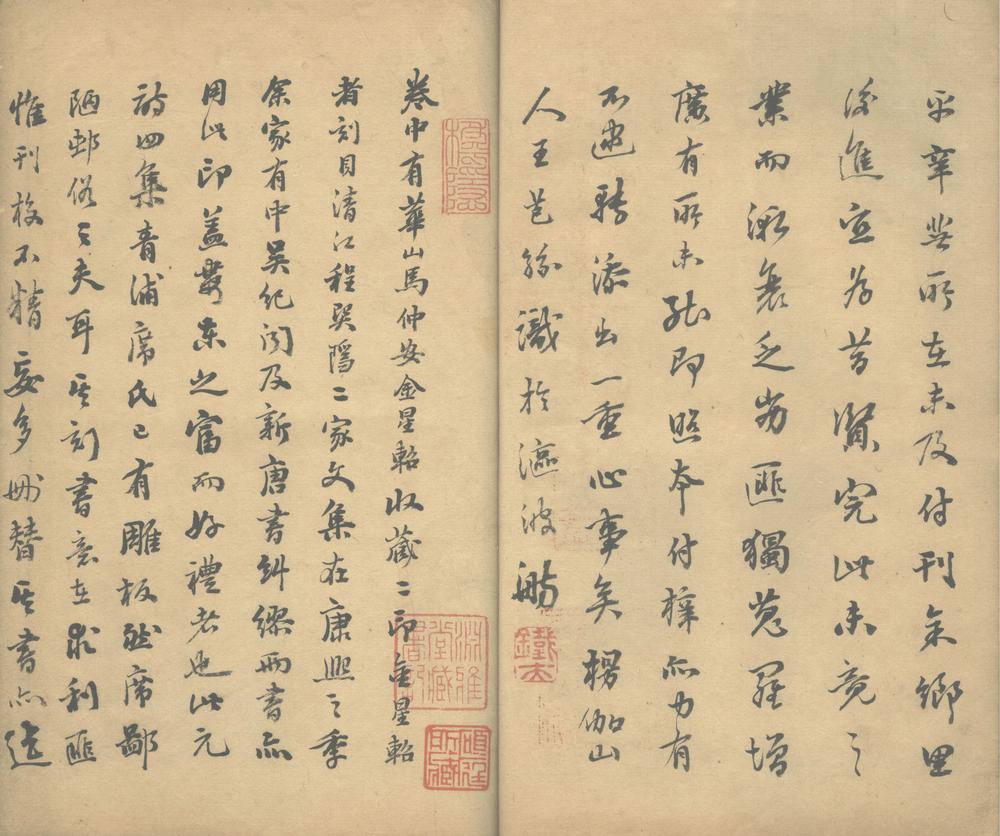 平辜無所在未及付刊余鄉里
後進宜為昔賢完此未竟之
業而漸衰乏劣匪獨蒐羅增
廣有所未能即照本付梓亦力有
不逮轉添出一重心事矣楞伽山
人王芑孫識於漚波舫
鐵夫
卷中有華山馬仲安金星軺收藏二印金星軺
者刻目清江程巽隱二家文集在康熙之季
余家有中吳紀聞及新唐書糾繆兩書亦
用此印蓋婁東之富而好禮者也此元
詩四集青浦席氏已有雕板然席鄙
陋邨俗之夫耳其刻書意在求利匪
惟刊校不精妄多刪替其書亦遂